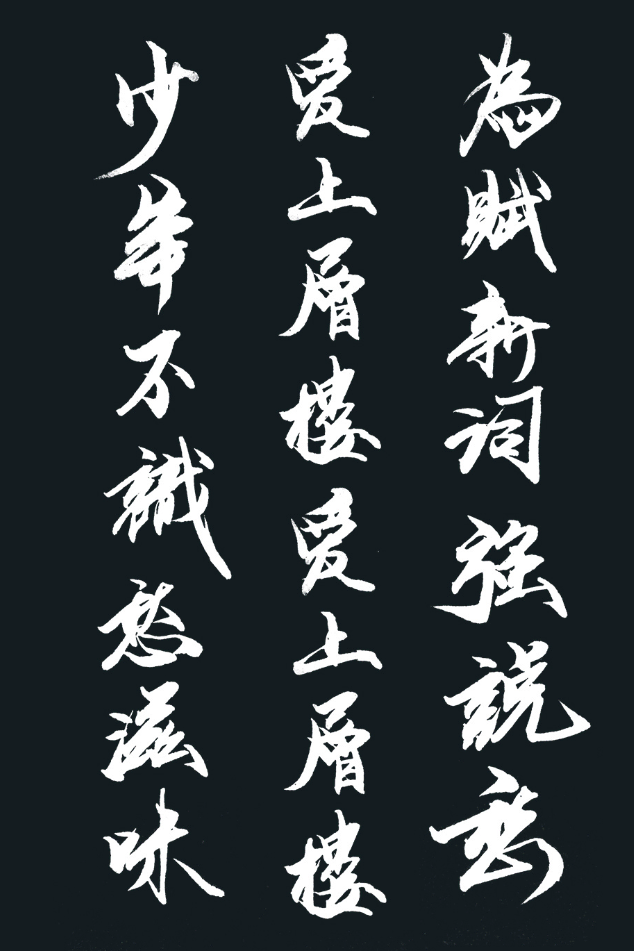 少年不識愁滋味
愛上層樓愛上層樓
為賦新詞強說愁